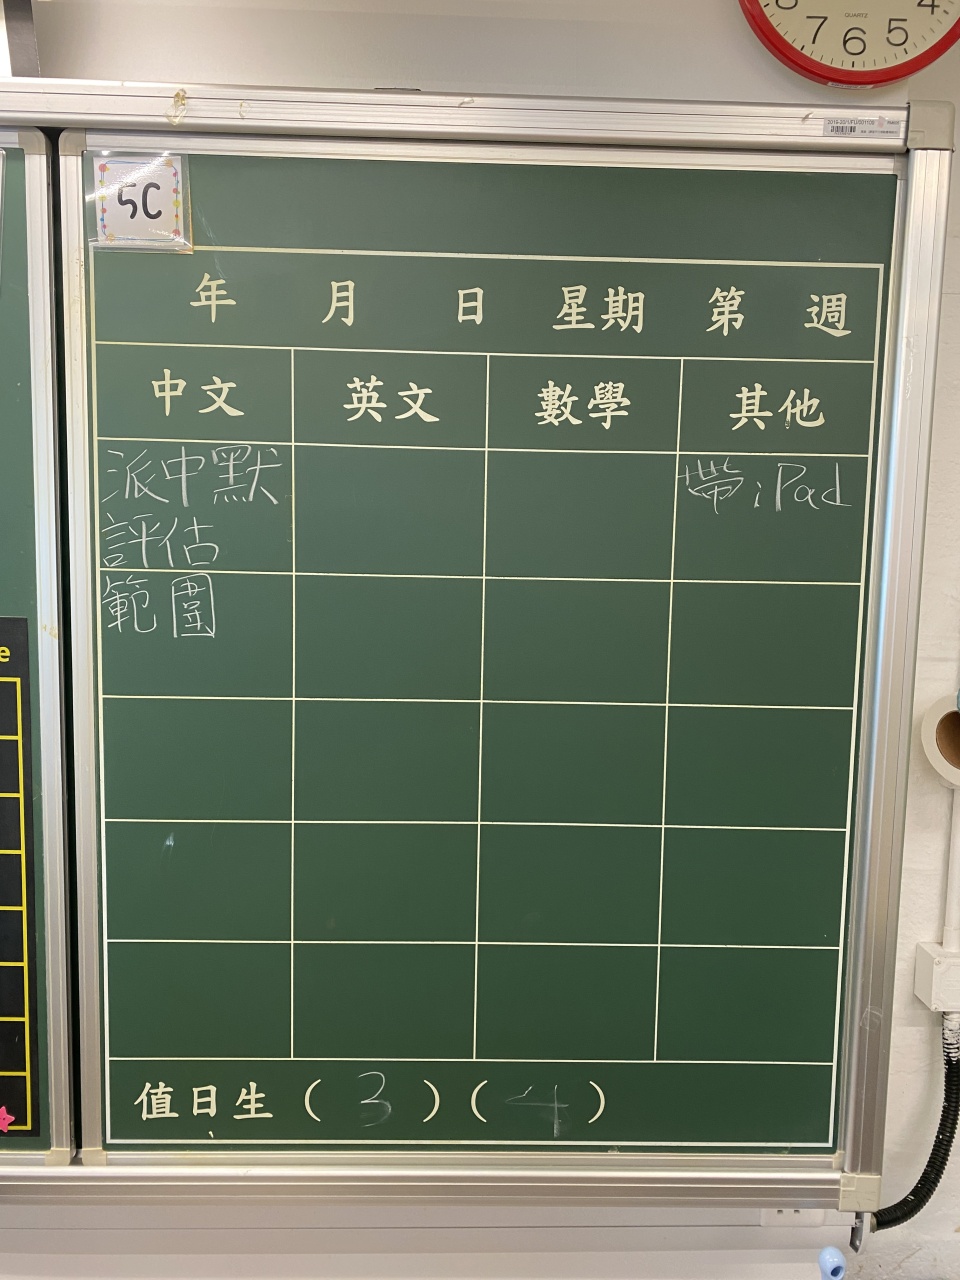 8 7 6 5 4
QUARTZ
5C
年 月 日 星期 第 週
中文 英文 數學 其他
派中默
評估
範圍
帶iPad
e
值日生 ( 3 ) ( 4 )